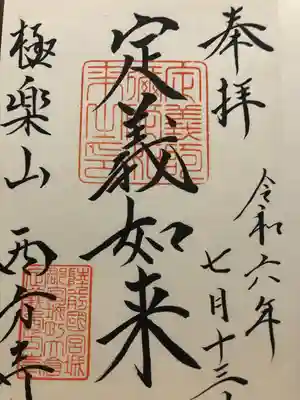 奉拝
令和六年
七月十三
定義如来
極楽山 西方寺